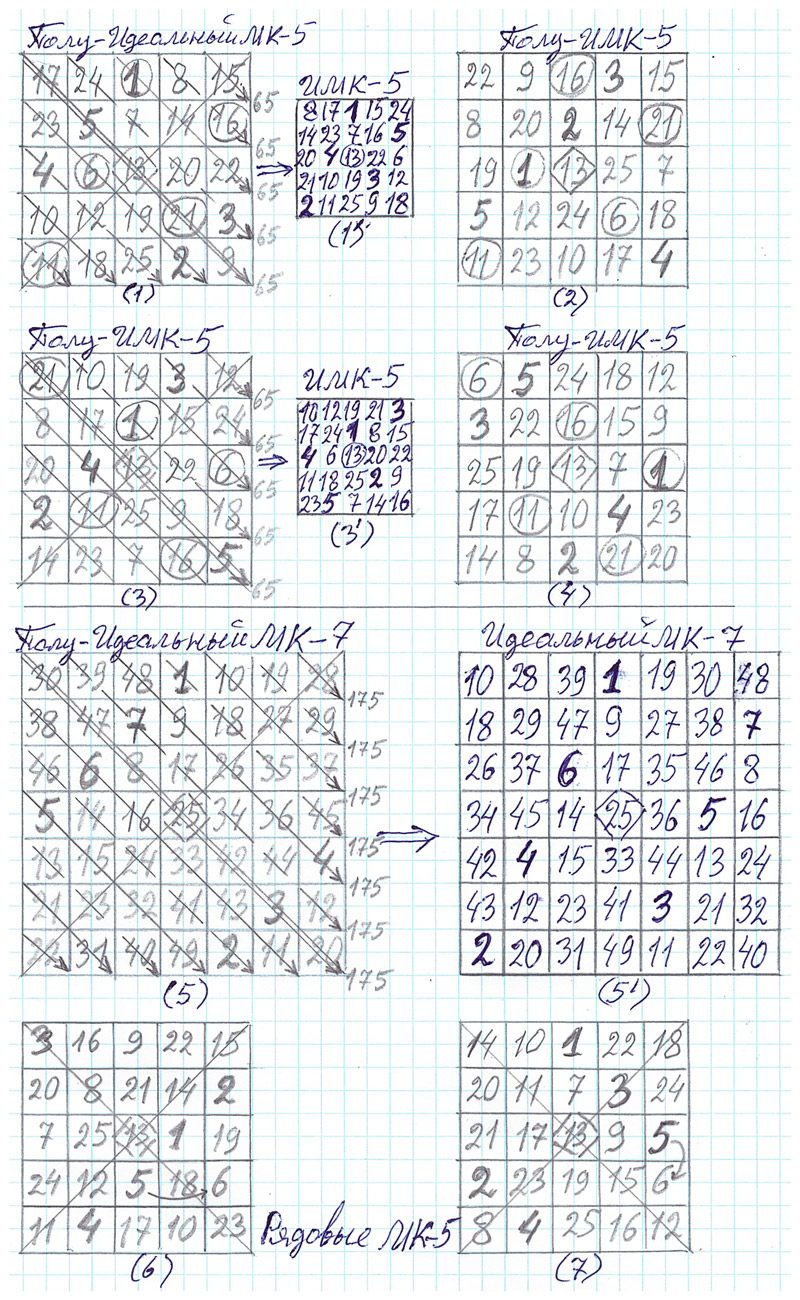 Полу-Идеальный МК-5
17 24 1 8 15
65
23 5 7 14 16
65
4 6 13 20 22
65
10 12 19 21 3
65
11 18 25 2 9
65
(1)
ИМК-5
8 17 1 15 24
14 23 7 16 5
20 4 13 22 6
21 10 19 3 12
2 11 25 9 18
(1)'
Полу-ИМК-5
22 9 16 3 15
8 20 2 14 21
19 1 13 25 7
5 12 24 6 18
11 23 10 17 4
(2)
Полу-ИМК-5
21 10 19 3 12
65
8 17 1 15 24
65
20 4 13 22 6
65
2 11 25 9 18
65
14 23 7 16 5
65
(3)
ИМК-5
10 12 19 21 3
17 24 1 8 15
4 6 13 20 22
11 18 25 2 9
23 5 7 14 16
(3')
Полу-ИМК-5
6 5 24 18 12
3 22 16 15 9
25 19 13 7 1
17 11 10 4 23
14 8 2 21 20
(4)
Полу-Идеальный МК-7
30 39 48 1 10 19 28
175
38 47 7 9 18 27 29
175
46 6 8 17 26 35 37
175
5 14 16 25 34 36 45
175
13 15 24 33 42 44 4
175
21 23 32 41 43 3 12
175
22 31 40 49 2 11 20
175
(5)
Идеальный МК-7
10 28 39 1 19 30 48
18 29 47 9 27 38 7
26 37 6 17 35 46 8
34 45 14 25 36 5 16
42 4 15 33 44 13 24
43 12 23 41 3 21 32
2 20 31 49 11 22 40
(5')
3 16 9 22 15
20 8 21 14 2
7 25 13 1 19
24 12 5 18 6
11 4 17 10 23
(6)
Рядовые МК-5
14 10 1 22 18
20 11 7 3 24
21 17 13 9 5
2 23 19 15 6
8 4 25 16 12
(7)